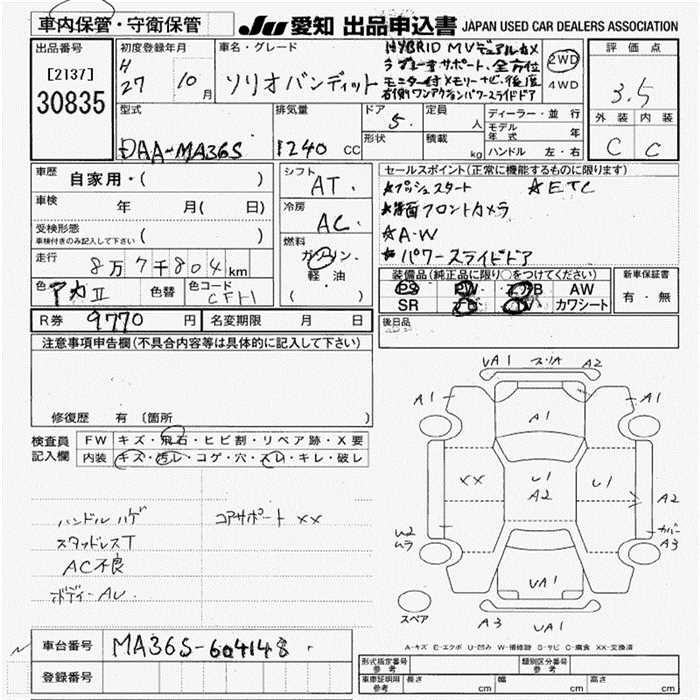 車内保管・守衛保管
JU 愛知 出品申込書 JAPAN USED CAR DEALERS ASSOCIATION
出品番号
[2137]
30835
初度登録年月
H
27 10月
車名・グレード
ソリオバンディット
HYBRID MV デュアルカメ
ラブレーキサポート、全方位
モニター付メモリーナビ、後席
右側ワンアクションパワースライドドア
2WD
4WD
評価点
3.5
外装 内装
C C
型式
DAA-MA36S
排気量
1240 CC
ドア
5.
形状
定員
人
積載
kg
ディーラー・並行
モデル年式 年
ハンドル 左・右
車歴
自家用・( )
車検
年 月( 日)
受検形態
車検付きのみ記入して下さい ( )
走行
8万7千804km
色 アカII 色替 色コード CFH
シフト
AT.
冷房
AC.
燃料
ガソリン・
軽・油
( )
セールスポイント(正常に機能するものに限ります)
☆プッシュスタート ☆ETC
☆背面フロントカメラ
☆A-W
☆パワースライドドア
装備品(純正品に限り○をつけてください)
PS PW AW
SR カワシート
新車保証書
有・無
後日品
R券 9770円 名変期限 月 日
注意事項申告欄(不具合内容等は具体的に記入して下さい)
修復歴 有 〔箇所
検査員
記入欄
FW キズ・飛石・ヒビ割・リペア跡・X要
内装 キズ・汚レ・コゲ・穴・スレ・キレ・破レ
ハンドルハゲ コアサポート XX
スタッドレスT
AC不良
ボディーAU
VA1 スリA A2
A1 A1 A1
XX U1 A2 U1 A2
U2 ムラ カバー A3
VA1
スペア
A3 UA1
A-キズ E-エクボ U-凹み W-補修跡 S-サビ C-腐食 XX-交換済
車台番号 MA36S-604148
登録番号
形式指定番号 参考
類別区分番号 参考
車庫証明用 参考 長さ cm 幅 cm 高さ cm